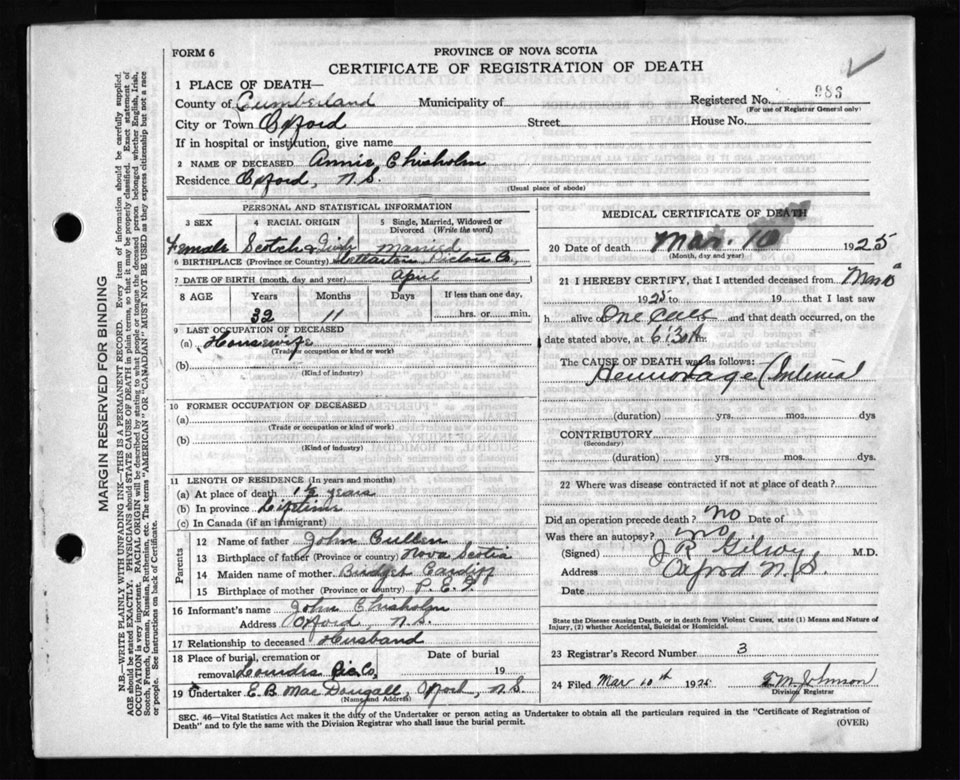 FORM 6
PROVINCE OF NOVA SCOTIA
CERTIFICATE OF REGISTRATION OF DEATH
1 PLACE OF DEATH—
County of Cumberland Municipality of Registered No. 983
(For use of Registrar General only)
City or Town Oxford Street House No.
If in hospital or institution, give name
2 NAME OF DECEASED Annie Chisholm
Residence Oxford, N.S.
(Usual place of abode)
PERSONAL AND STATISTICAL INFORMATION
3 SEX 4 RACIAL ORIGIN 5 Single, Married, Widowed or Divorced (Write the word)
Female Scotch & Irish Married
6 BIRTHPLACE (Province or Country) Pictou Co.
7 DATE OF BIRTH (month, day and year) April
8 AGE Years Months Days If less than one day,
32 11 hrs. or min.
9 LAST OCCUPATION OF DECEASED
(a) Housewife
(Trade or occupation or kind or work)
(b)
(Kind of industry)
10 FORMER OCCUPATION OF DECEASED
(a)
(Trade or occupation or kind of work)
(b)
(Kind of industry)
11 LENGTH OF RESIDENCE (In years and months)
(a) At place of death 1½ years
(b) In province Lifetime
(c) In Canada (if an immigrant)
Parents
12 Name of father John Cullen
13 Birthplace of father (Province or country) Nova Scotia
14 Maiden name of mother Bridget
15 Birthplace of mother (Province or country) P.E.I.
16 Informant's name John Chisholm
Address Oxford, N.S.
17 Relationship to deceased Husband
18 Place of burial, cremation or removal Lourdes Pic Co, Date of burial 19
19 Undertaker E. B. MacDougall, Oxford, N.S.
(Name and Address)
MEDICAL CERTIFICATE OF DEATH
20 Date of death Mar. 10 1925
(Month, day and year)
21 I HEREBY CERTIFY, that I attended deceased from Mar 10
1925 to 19 that I last saw
h alive on One call and that death occurred, on
date stated above, at 6:30 A m.
The CAUSE OF DEATH was as follows:
Hemorhage (Intinial
(duration) yrs. mos. dys
CONTRIBUTORY
(Secondary)
(duration) yrs. mos. dys.
22 Where was disease contracted if not at place of death?
Did an operation precede death? no Date of
Was there an autopsy? no
(Signed) J R Gilroy M.D.
Address Oxford N.S.
Date
State the Disease causing Death, or in death from Violent Causes, state (1) Means and Nature of Injury, (2) whether Accidental, Suicidal or Homicidal.
23 Registrar's Record Number 3
24 Filed Mar 10th 1925 Johnson
Division Registrar
SEC. 46—Vital Statistics Act makes it the duty of the Undertaker or person acting as Undertaker to obtain all the particulars required in the "Certificate of Registration of
Death" and to fyle the same with the Division Registrar who shall issue the burial permit.
(OVER)
MARGIN RESERVED FOR BINDING
N.B.—WRITE PLAINLY WITH UNFADING INK—THIS IS A PERMANENT RECORD. Every item of information should be carefully supplied.
AGE should be stated EXACTLY. PHYSICIANS should STATE CAUSE OF DEATH in plain terms, so that it may be properly classified. Exact statement of
OCCUPATION is very important. RACIAL ORIGIN will be described by stating to what people or tongue the deceased person belonged whether English, Irish,
Scotch, French, German, Russian, Ruthenian, etc. The terms "AMERICAN" OR "CANADIAN" MUST NOT BE USED as they express citizenship but not a race
or people. See instructions on back of Certificate.